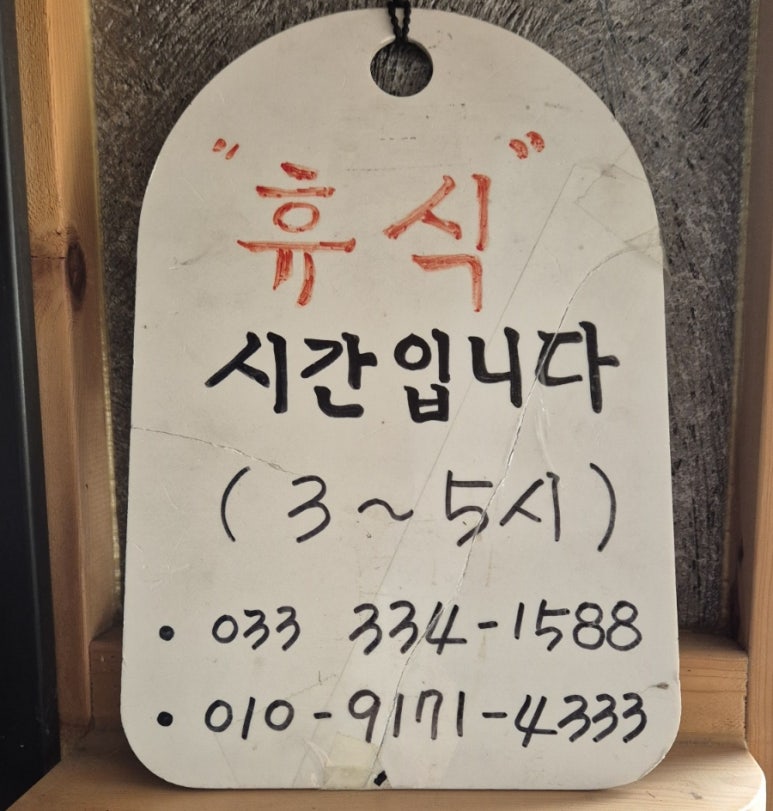 "휴식"
시간입니다
(3~5시)
• 033 334-1588
• 010-9171-4333